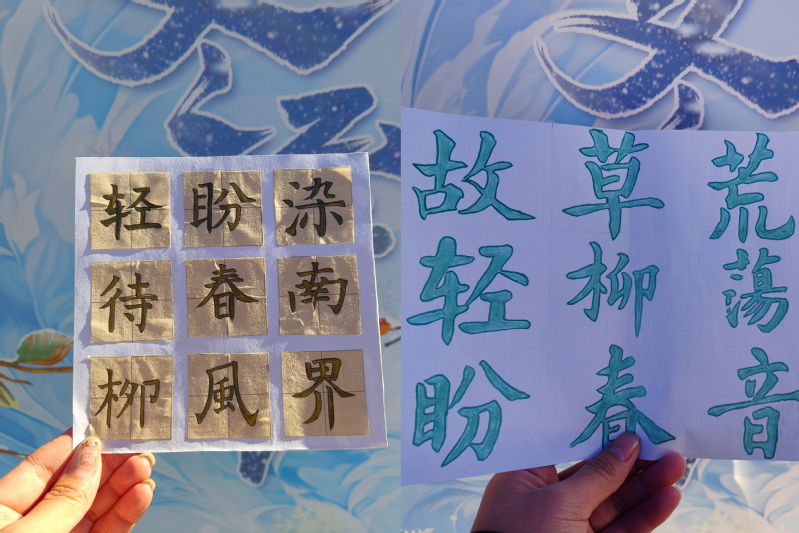 轻待柳
盼春風
染南界
故草荒
轻柳蕩
盼春音